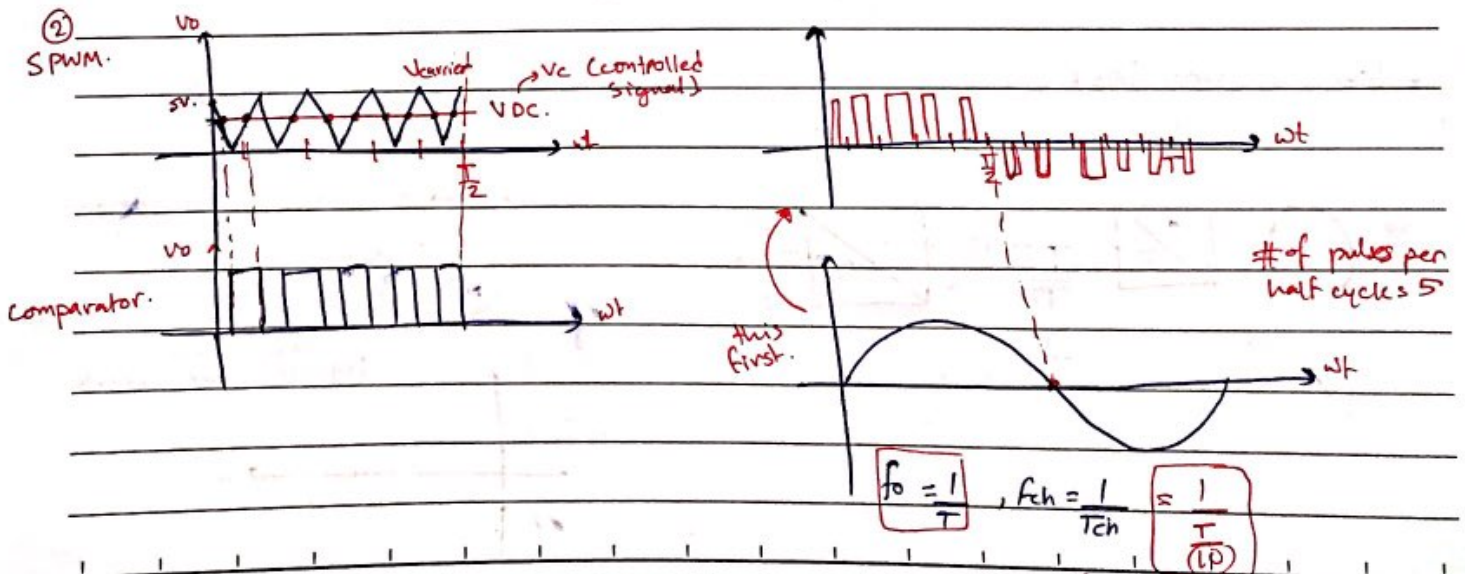 ②
SPWM.
Vo
5V.
Vcarrier
Vc (controlled
signal)
VDC.
wt
T/2
Vo
Comparator.
wt
wt
T/2
T
# of pulses per
half cycle = 5
this
first.
wt
fo = 1/T , fch = 1/Tch = 1/(T/(LP))